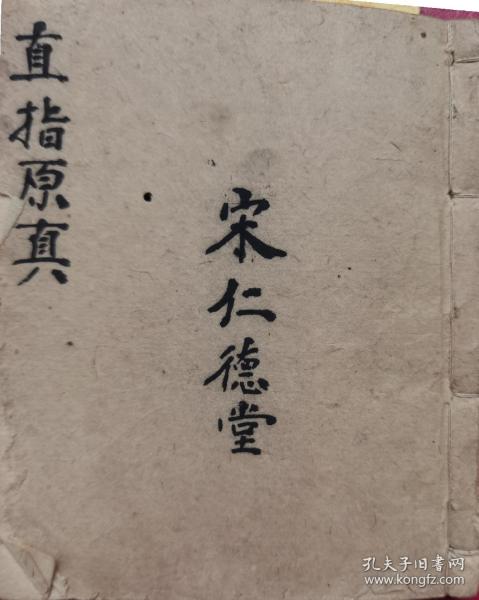 直指原真
宋仁德堂
孔夫子旧书网
www.kongfz.com